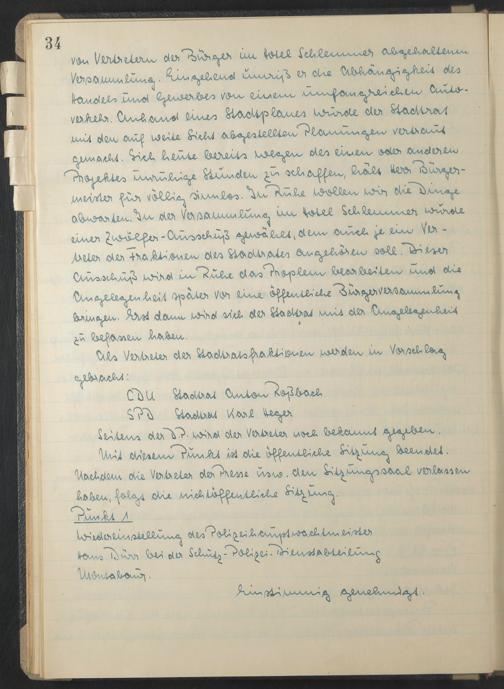 34
von Vertretern der Bürger im Hotel Schlemmer abgehaltenen
Versammlung. Eingehend umriß er die Abhängigkeit des
Handels und Gewerbes von einem umfangreichen Auto-
verkehr. Anhand eines Stadtplanes wurde der Stadtrat
mit den auf weite Sicht abgestellten Planungen vertraut
gemacht. Sich heute bereits wegen des einen oder anderen
Projektes unruhige Stunden zu schaffen, hält Herr Bürger-
meister für völlig sinnlos. In Ruhe wollen wir die Dinge
abwarten. In der Versammlung im Hotel Schlemmer wurde
einer Zwölfer-Ausschuß gewählt, dem auch je ein Ver-
treter der Fraktionen des Stadtrates angehören soll. Dieser
Ausschuß wird in Ruhe das Proplem bearbeiten und die
Angelegenheit später vor eine öffentliche Bürgerversammlung
bringen. Erst dann wird sich der Stadtrat mit der Angelegenheit
zu befassen haben.
Als Vertreter der Stadtratsfraktionen werden in Vorschlag
gebracht:
CDU Stadtrat Anton Roßbach
SPD Stadtrat Karl Heger
Seitens der D.P. wird der Vertreter noch bekannt gegeben.
Mit diesem Punkt ist die öffentliche Sitzung beendet.
Nachdem die Vertreter der Presse usw. den Sitzungssaal verlassen
haben, folgt die nichtöffentliche Sitzung.
Punkt 1
Wiedereinstellung des Polizeihauptwachtmeister
Hans Dürr bei der Schutz-Polizei-Dienstabteilung
Montabaur.
Einstimmig genehmigt.